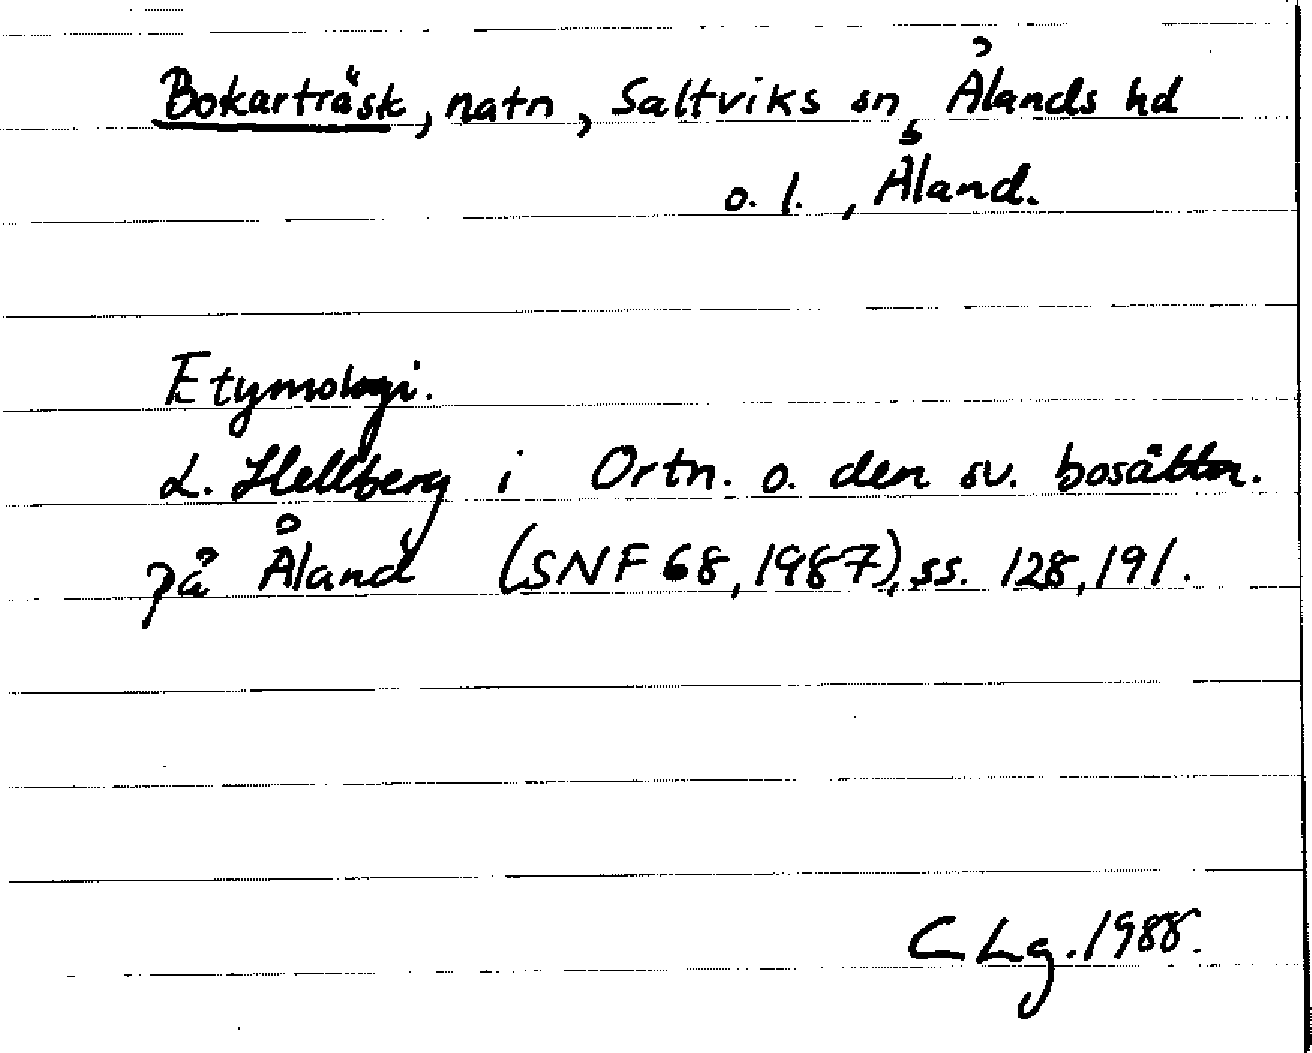 Bokarträsk, natn, Saltviks sn, Ålands hd
o. l., Åland.
Etymologi.
L. Hellberg i Ortn. o. den sv. bosättn.
på Åland (SNF 68, 1987), ss. 128, 191.
C Lg. 1988.